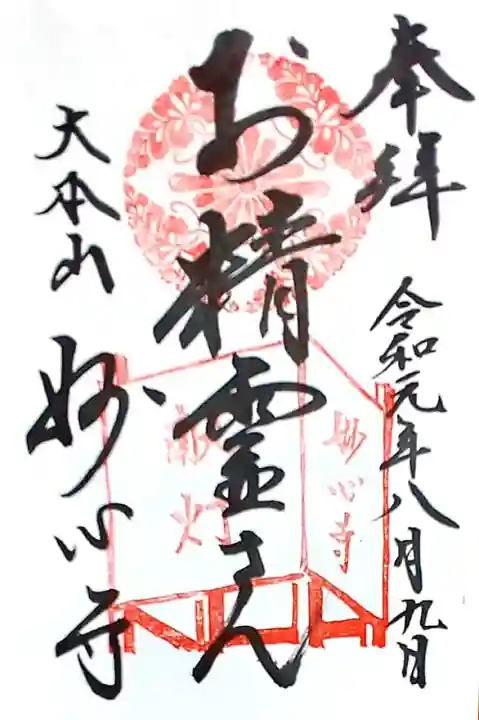 奉拝
令和元年八月九日
お精霊さん
大本山
妙心寺
妙心寺
献灯